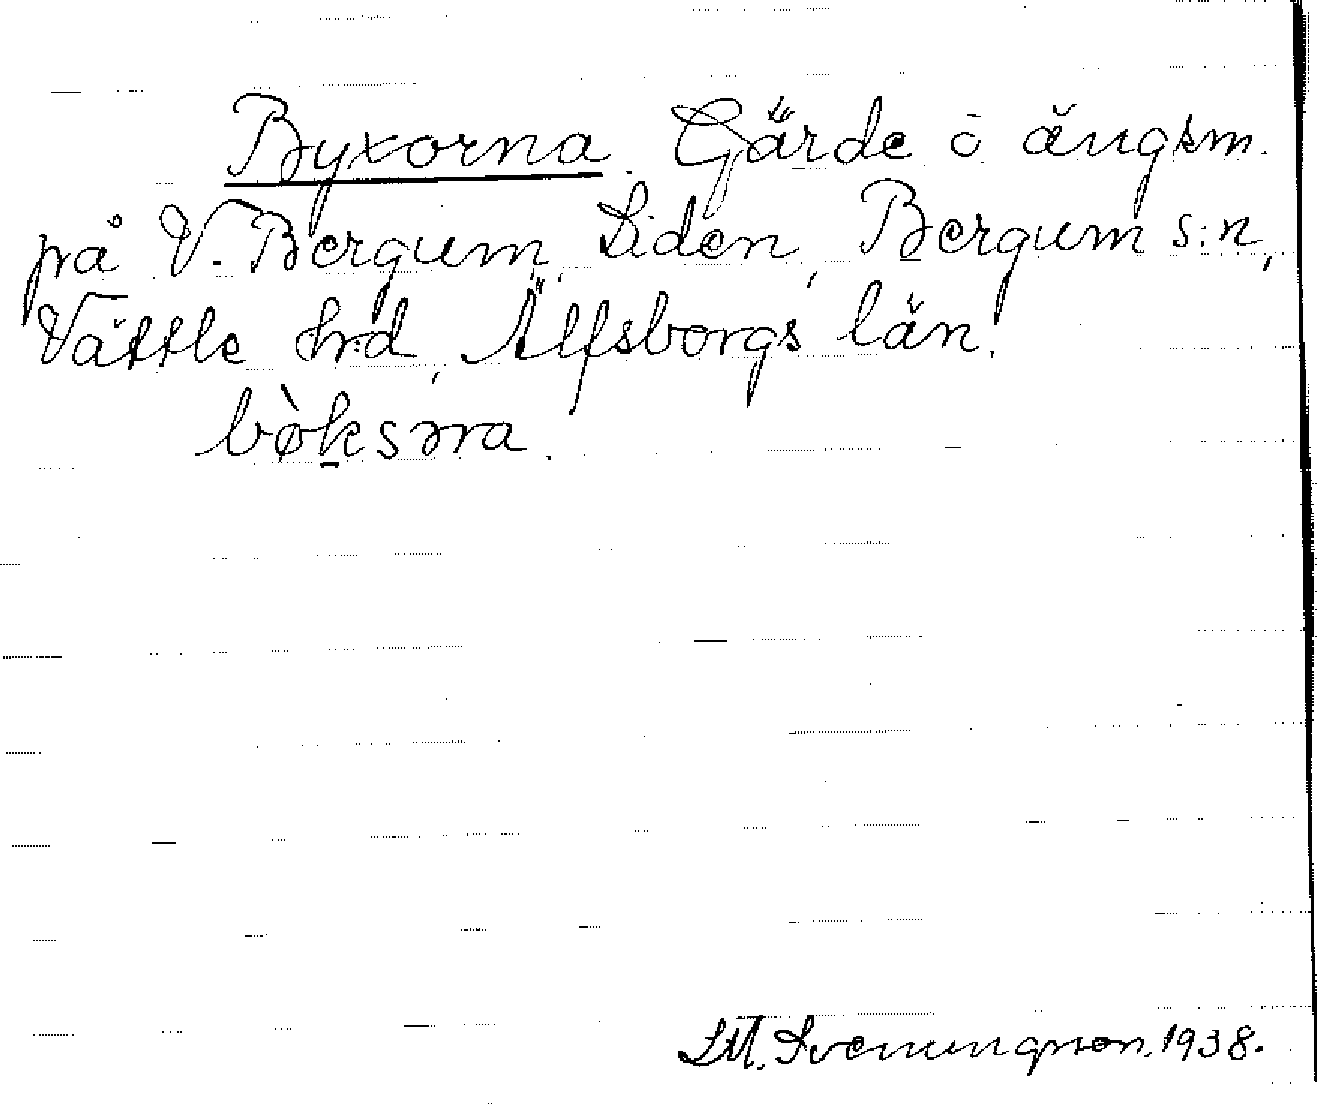 Byxorna. Gärde o ängsm.
på V. Bergum, Liden, Bergum s:n,
Vättle hrd, Älfsborgs län.
bø̀ksəra.
LM. Svenungsson. 1938.